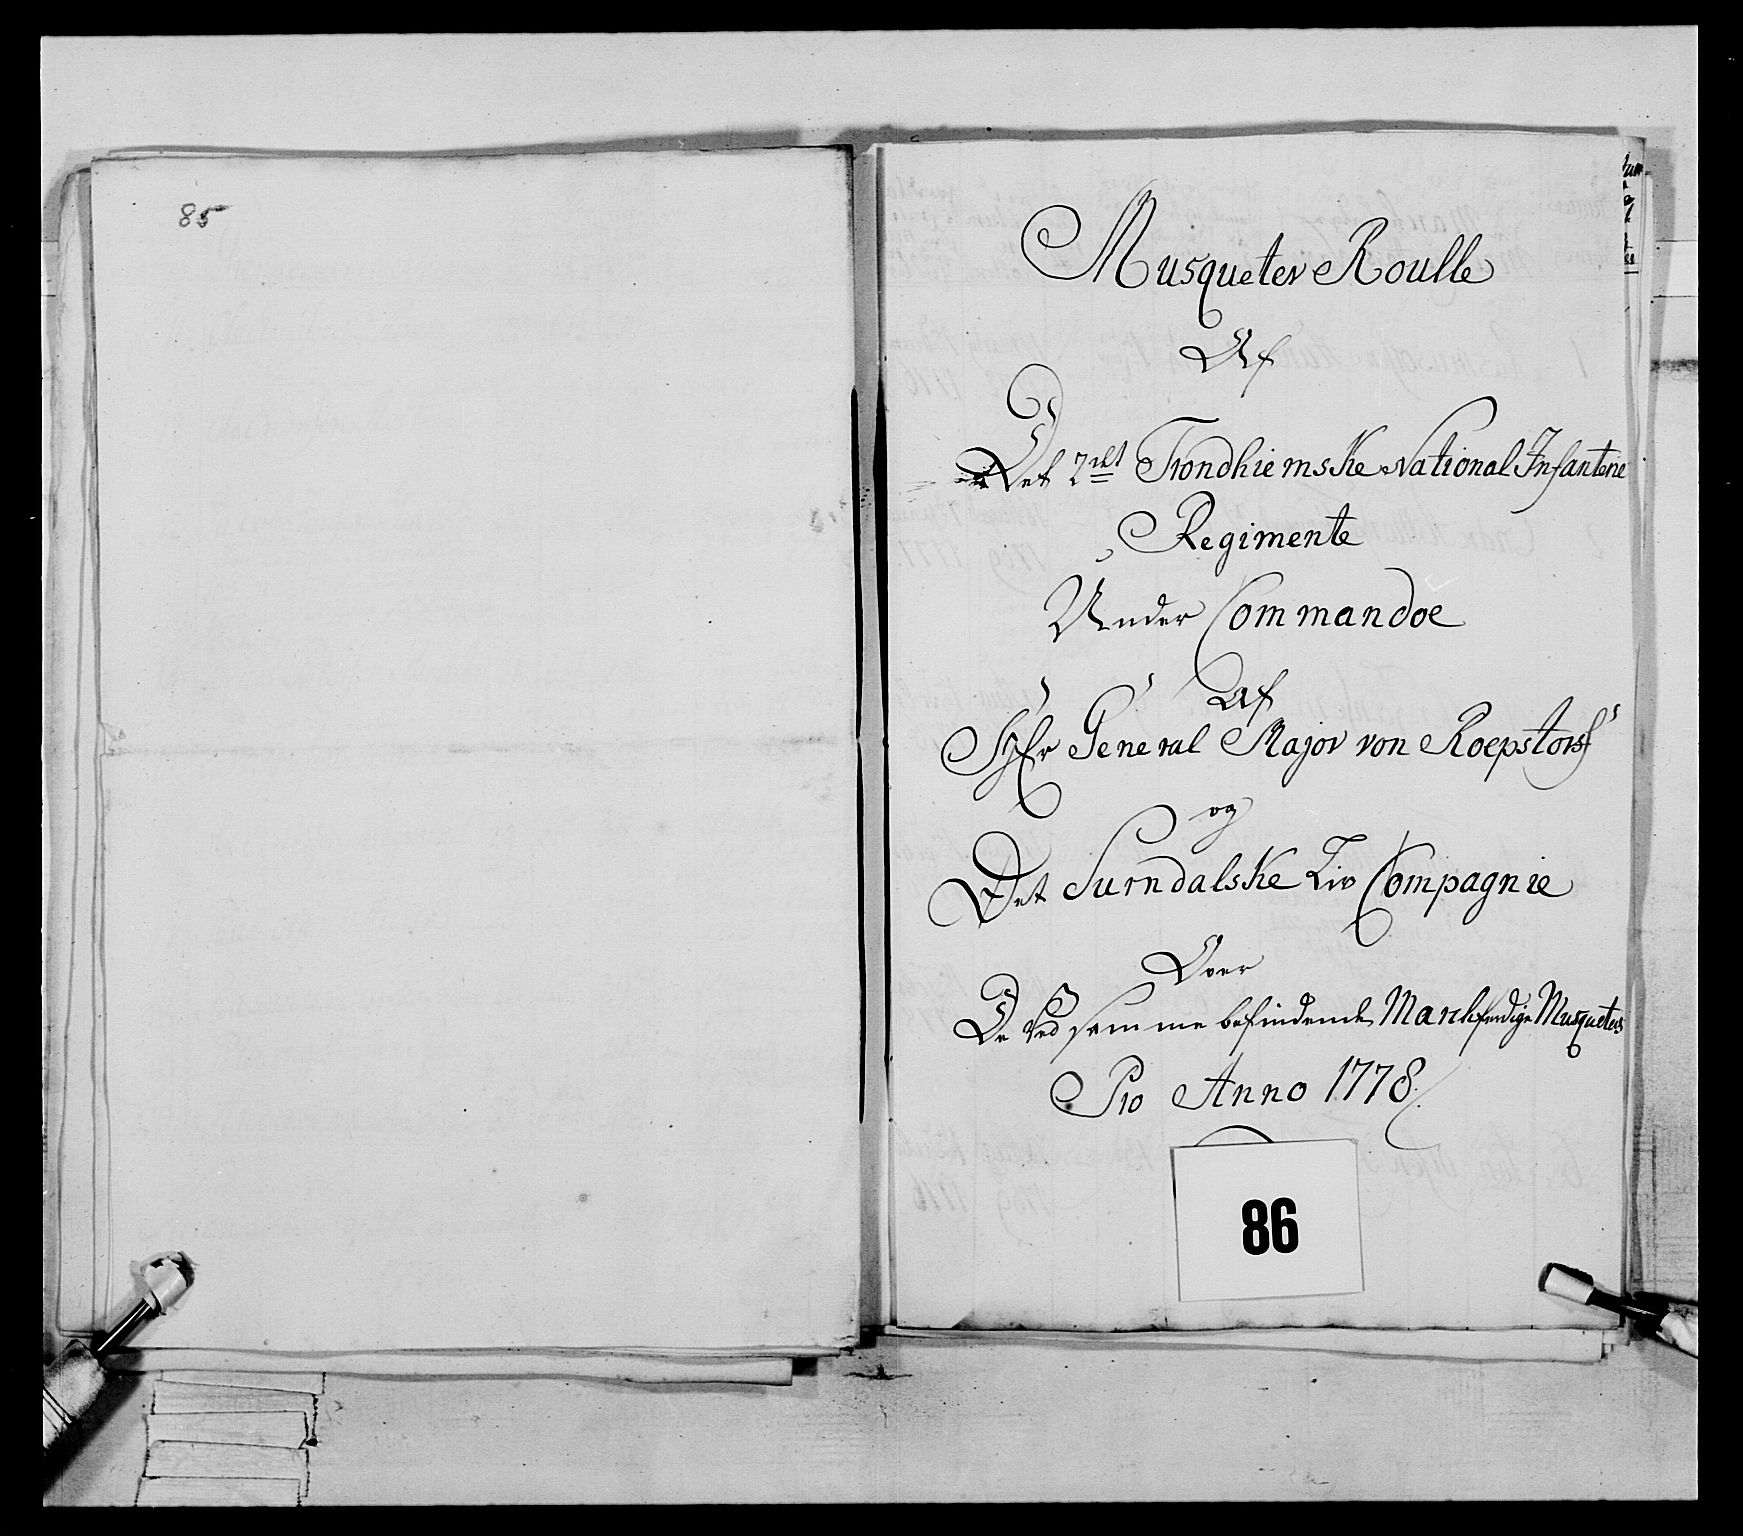 85
Musqueter Roulle
Af
Det 2det Trondhiemske National Infanterie
Regimente
Under Commandoe
Af
Hr General Major von Roepstorf
og
Det Surndalske Liv Compagnie
Over
De ved samme befindende Musqueters
Pro Anno 1778
86